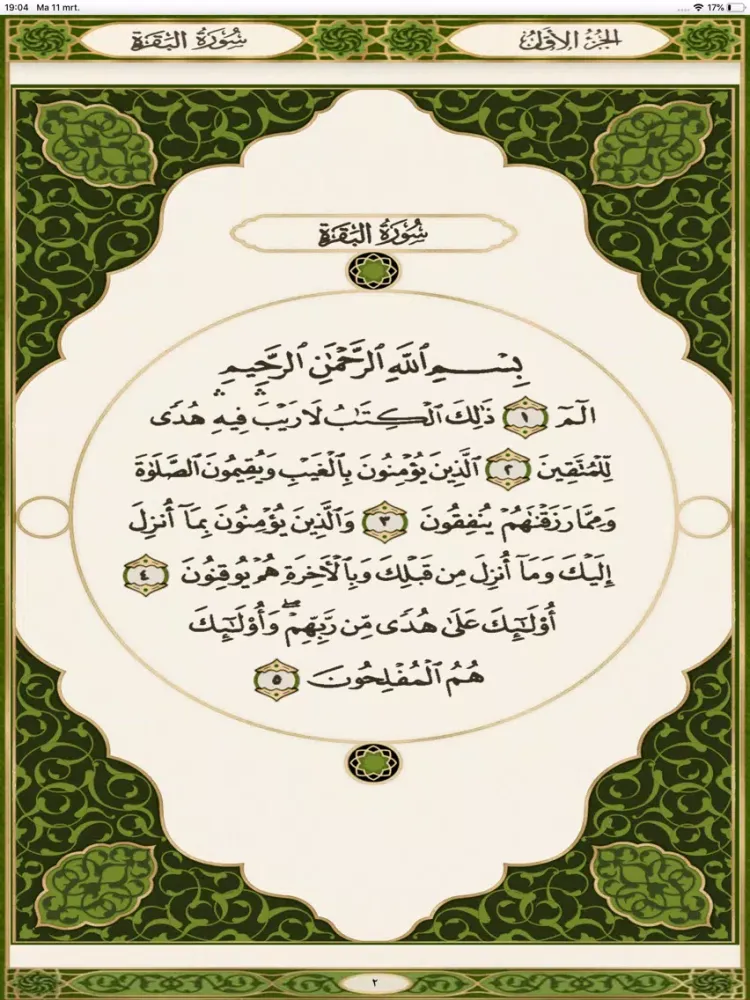 19:04 Ma 11 mrt. 17%
سُورَةُ البَقَرَةِ الجُزْءُ الأَوَّلُ
سُورَةُ البَقَرَةِ
بِسْمِ ٱللَّهِ ٱلرَّحْمَٰنِ ٱلرَّحِيمِ
الٓمٓ ١ ذَٰلِكَ ٱلْكِتَٰبُ لَا رَيْبَ ۛ فِيهِ ۛ هُدًى
لِّلْمُتَّقِينَ ٢ ٱلَّذِينَ يُؤْمِنُونَ بِٱلْغَيْبِ وَيُقِيمُونَ ٱلصَّلَوٰةَ
وَمِمَّا رَزَقْنَٰهُمْ يُنفِقُونَ ٣ وَٱلَّذِينَ يُؤْمِنُونَ بِمَآ أُنزِلَ
إِلَيْكَ وَمَآ أُنزِلَ مِن قَبْلِكَ وَبِٱلْأَخِرَةِ هُمْ يُوقِنُونَ ٤
أُو۟لَٰٓئِكَ عَلَىٰ هُدًى مِّن رَّبِّهِمْ ۖ وَأُو۟لَٰٓئِكَ
هُمُ ٱلْمُفْلِحُونَ ٥
٢